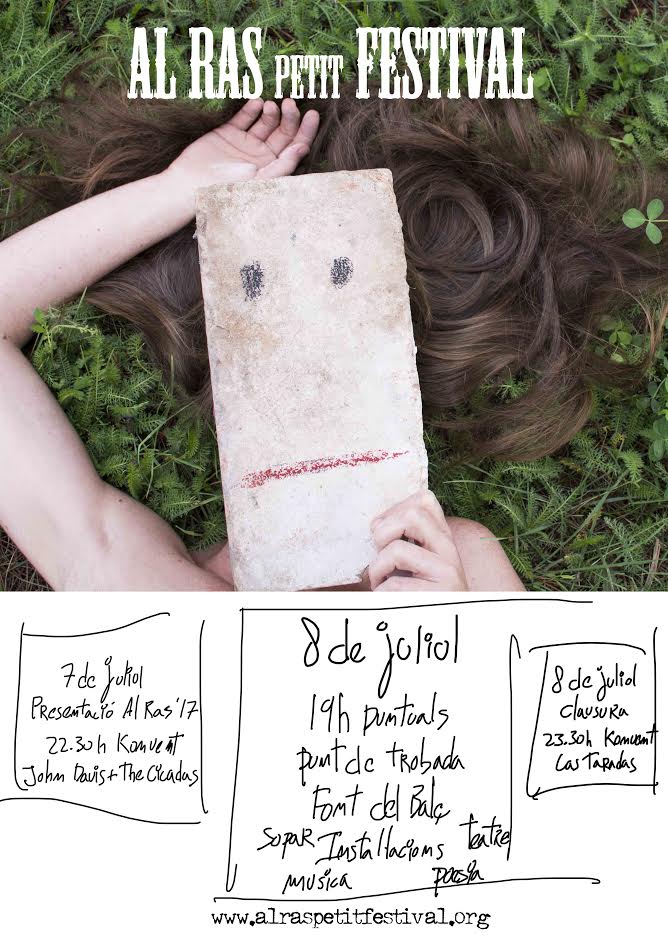 AL RAS PETIT FESTIVAL
7 de juliol
Presentació Al Ras '17
22.30h Konvent
John Davis + The Cicadas
8 de juliol
19h puntuals
punt de trobada
Font del Balç
sopar Instal·lacions teatre
musica poesia
8 de juliol
clausura
23.30h Konvent
Las Taradas
www.alraspetitfestival.org